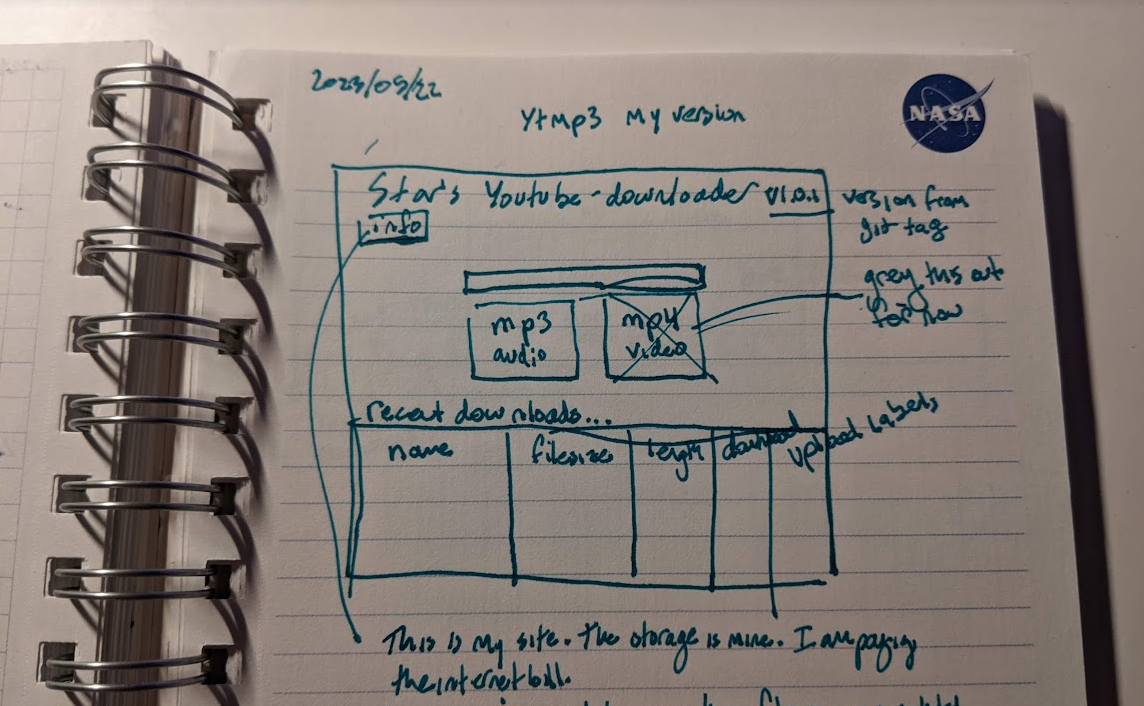 2023/09/22
NASA
YTMp3 My version
Star's Youtube-downloader v1.0.1
version from
git tag
info
grey this out
for now
mp3
audio
mp4
video
recent downloads...
name
filesize
length
download
upload labels
This is my site. The storage is mine. I am paying
the internet bill.